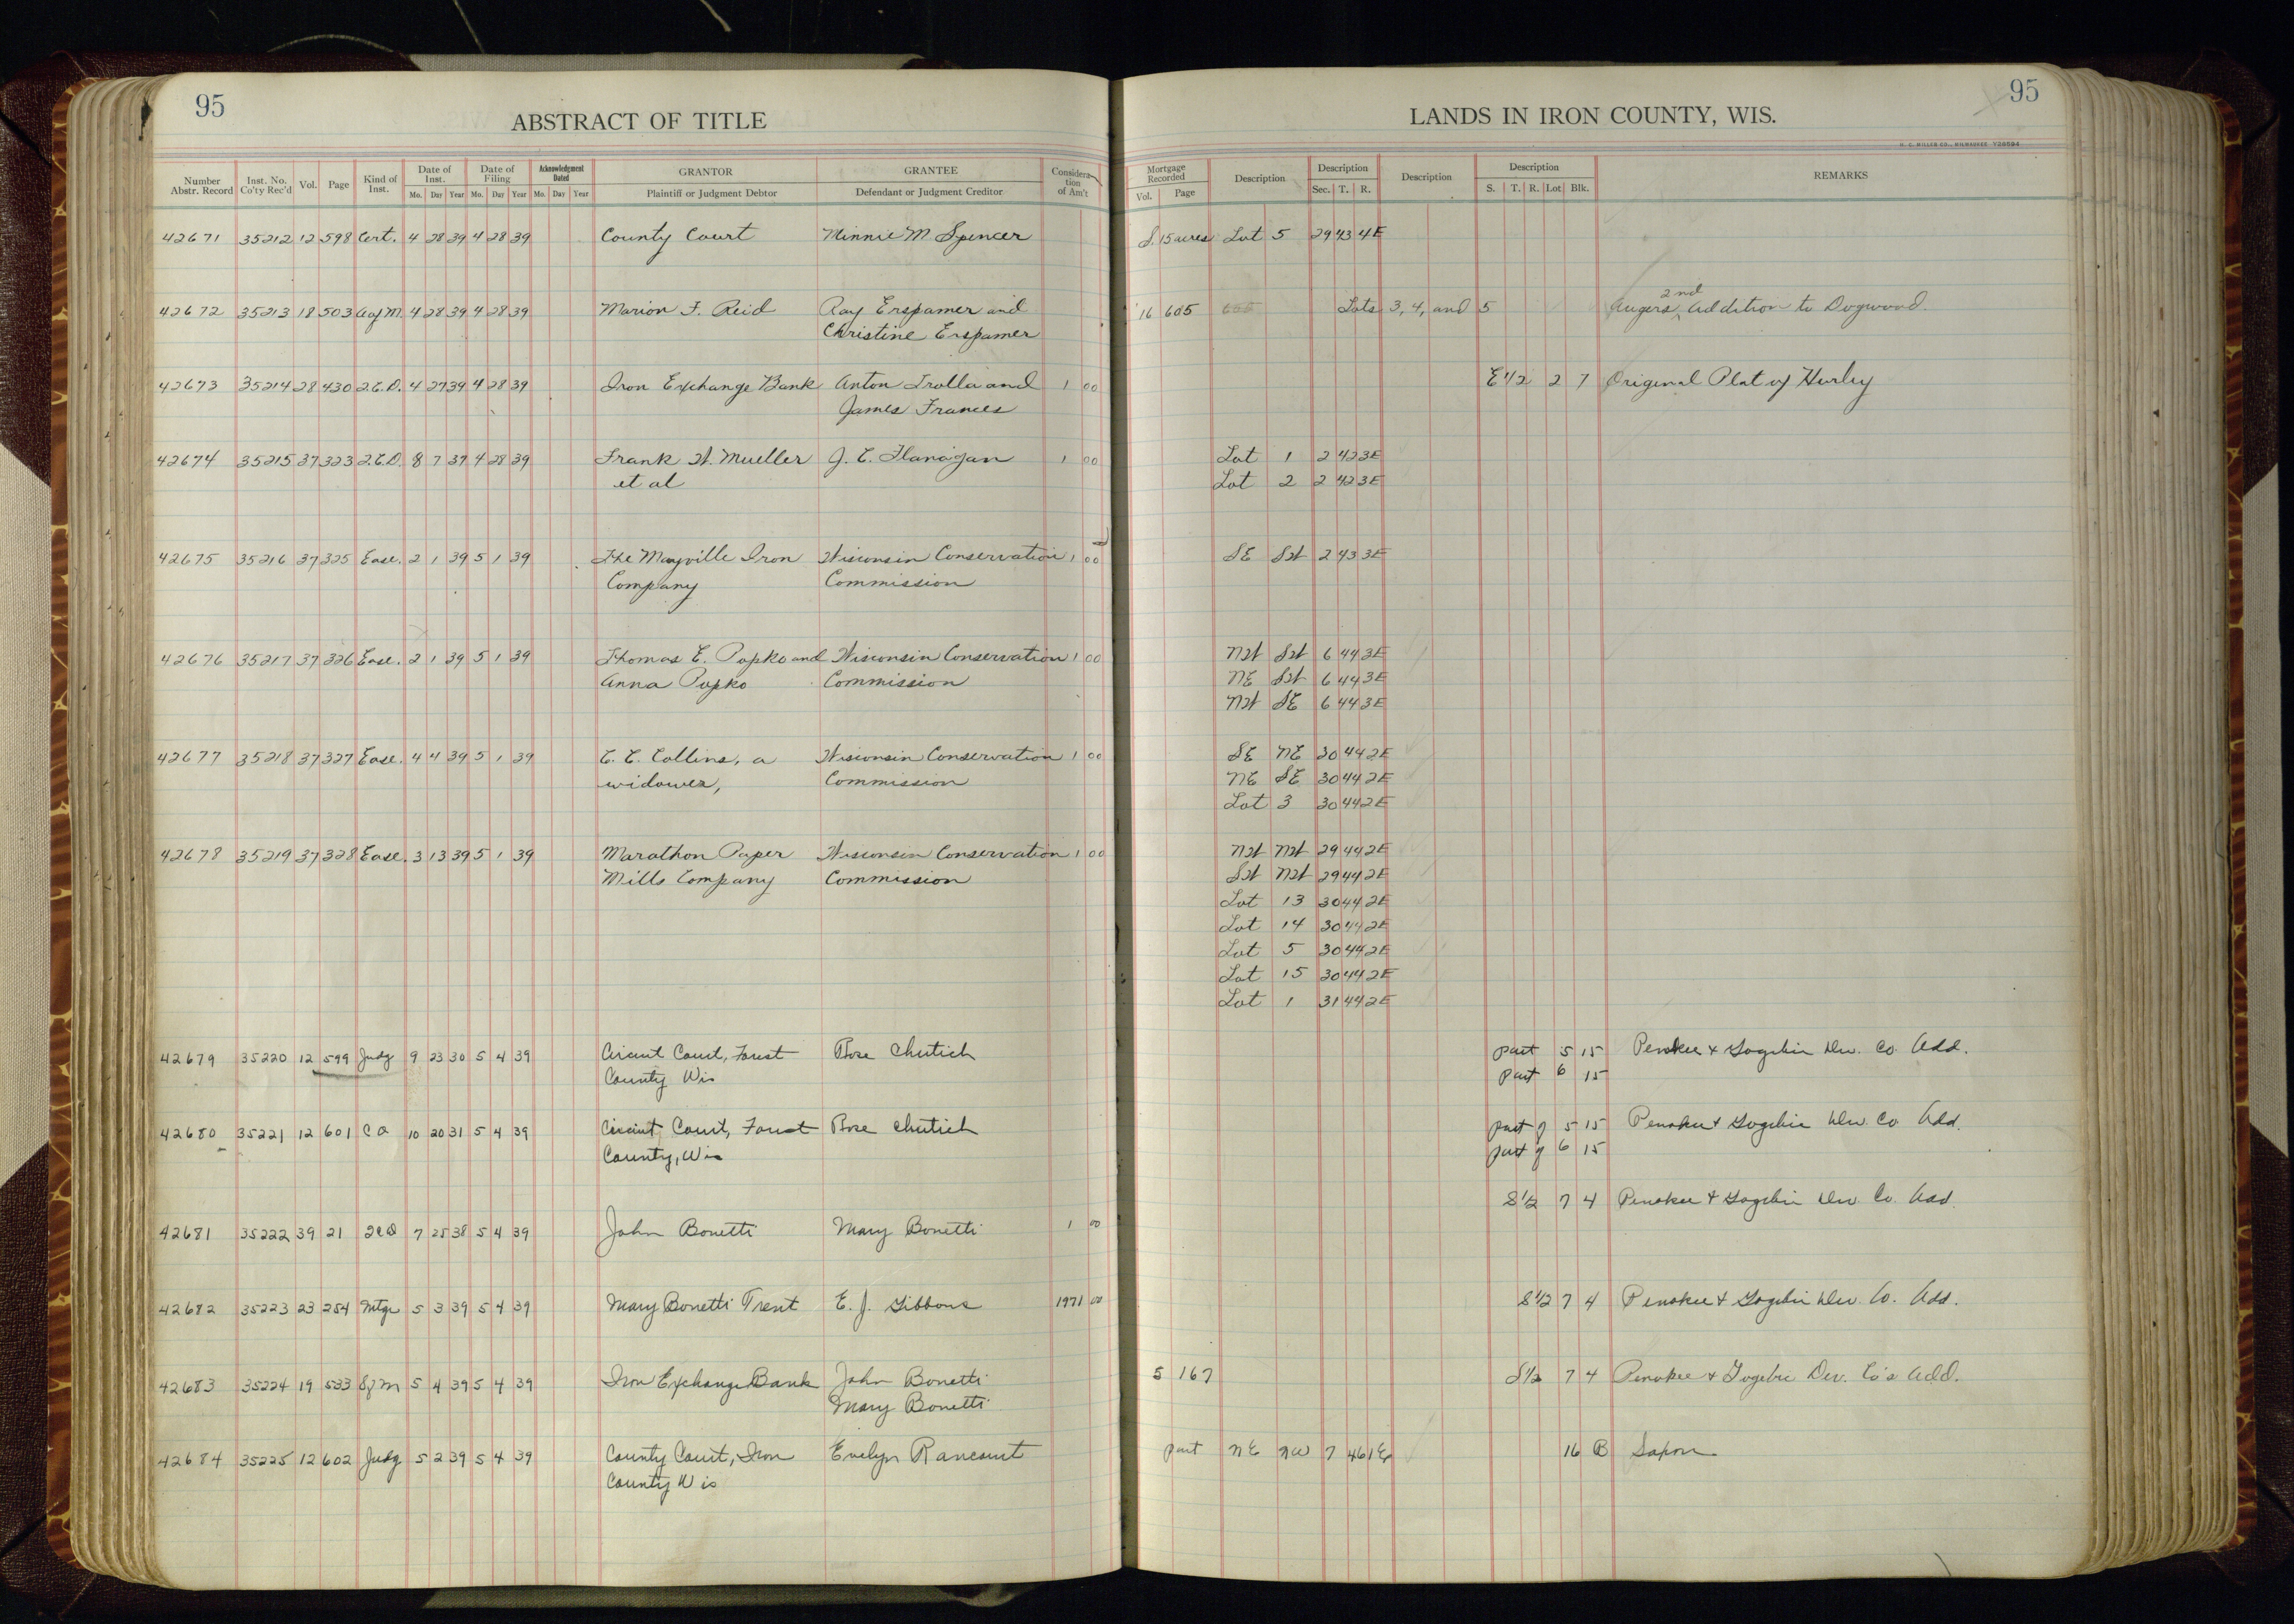 95
ABSTRACT OF TITLE
Number Abstr. Record | Inst. No. Co'ty Rec'd | Vol. | Page | Kind of Inst. | Date of Inst. Mo. Day Year | Date of Filing Mo. Day Year | Acknowledgment Dated Mo. Day Year | GRANTOR Plaintiff or Judgment Debtor | GRANTEE Defendant or Judgment Creditor | Consideration of Am't
42671 35212 12 598 Cert. 4 28 39 4 28 39 County Court Minnie M. Spencer
42672 35213 18 503 A of M. 4 28 39 4 28 39 Marion F. Reid Ray Erspamer and
Christine Erspamer
42673 35214 28 430 2.C.D. 4 27 39 4 28 39 Iron Exchange Bank Anton Trolla and 1 00
James Frances
42674 35215 37 323 2.C.D. 8 7 37 4 28 39 Frank W. Mueller J. E. Flanagan 1 00
et al
42675 35216 37 325 Ease. 2 1 39 5 1 39 The Mayville Iron Wisconsin Conservation 1 00
Company Commission
42676 35217 37 326 Ease. 2 1 39 5 1 39 Thomas E. Popko and Wisconsin Conservation 1 00
Anna Popko Commission
42677 35218 37 327 Ease. 4 4 39 5 1 39 E. E. Collins, a Wisconsin Conservation 1 00
widower, Commission
42678 35219 37 328 Ease. 3 13 39 5 1 39 Marathon Paper Wisconsin Conservation 1 00
Mills Company Commission
42679 35220 12 599 Judg 9 23 30 5 4 39 Circuit Court, Forest Rose Chutich
County Wis
42680 35221 12 601 CO 10 20 31 5 4 39 Circuit Court, Forest Rose Chutich
County, Wis
42681 35222 39 21 2CD 7 25 38 5 4 39 John Bonetti Mary Bonetti 1 00
42682 35223 23 254 Mtge 5 3 39 5 4 39 Mary Bonetti Trent E. J. Gibbons 1971 00
42683 35224 19 533 S of M 5 4 39 5 4 39 Iron Exchange Bank John Bonetti
Mary Bonetti
42684 35225 12 602 Judg 5 2 39 5 4 39 County Court, Iron Evelyn Rancourt
County Wis
95
LANDS IN IRON COUNTY, WIS.
H. C. MILLER CO., MILWAUKEE
Mortgage Recorded Vol. Page | Description | Description Sec. T. R. | Description | Description S. T. R. Lot Blk. | REMARKS
S. 15 acres Lot 5 29 43 4E
2nd
16 605 Lots 3, 4, and 5 Augers Addition to Dogwood.
E 1/2 2 7 Original Plat of Hurley
Lot 1 2 42 3E
Lot 2 2 42 3E
SE SW 2 43 3E
NW SW 6 44 3E
NE SW 6 44 3E
NW SE 6 44 3E
SE NE 30 44 2E
NE SE 30 44 2E
Lot 3 30 44 2E
NW NW 29 44 2E
SW NW 29 44 2E
Lot 13 30 44 2E
Lot 14 30 44 2E
Lot 5 30 44 2E
Lot 15 30 44 2E
Lot 1 31 44 2E
part 5 15 Penokee & Gogebic Dev. Co. Add.
part 6 15
part of 5 15 Penokee & Gogebic Dev. Co Add.
part of 6 15
S 1/2 7 4 Penokee & Gogebic Dev. Co. Add
S 1/2 7 4 Penokee & Gogebic Dev Co. Add.
5 167 S 1/2 7 4 Penokee & Gogebic Dev. Co's Add.
part NE NW 7 46 1E 16 B Saxon